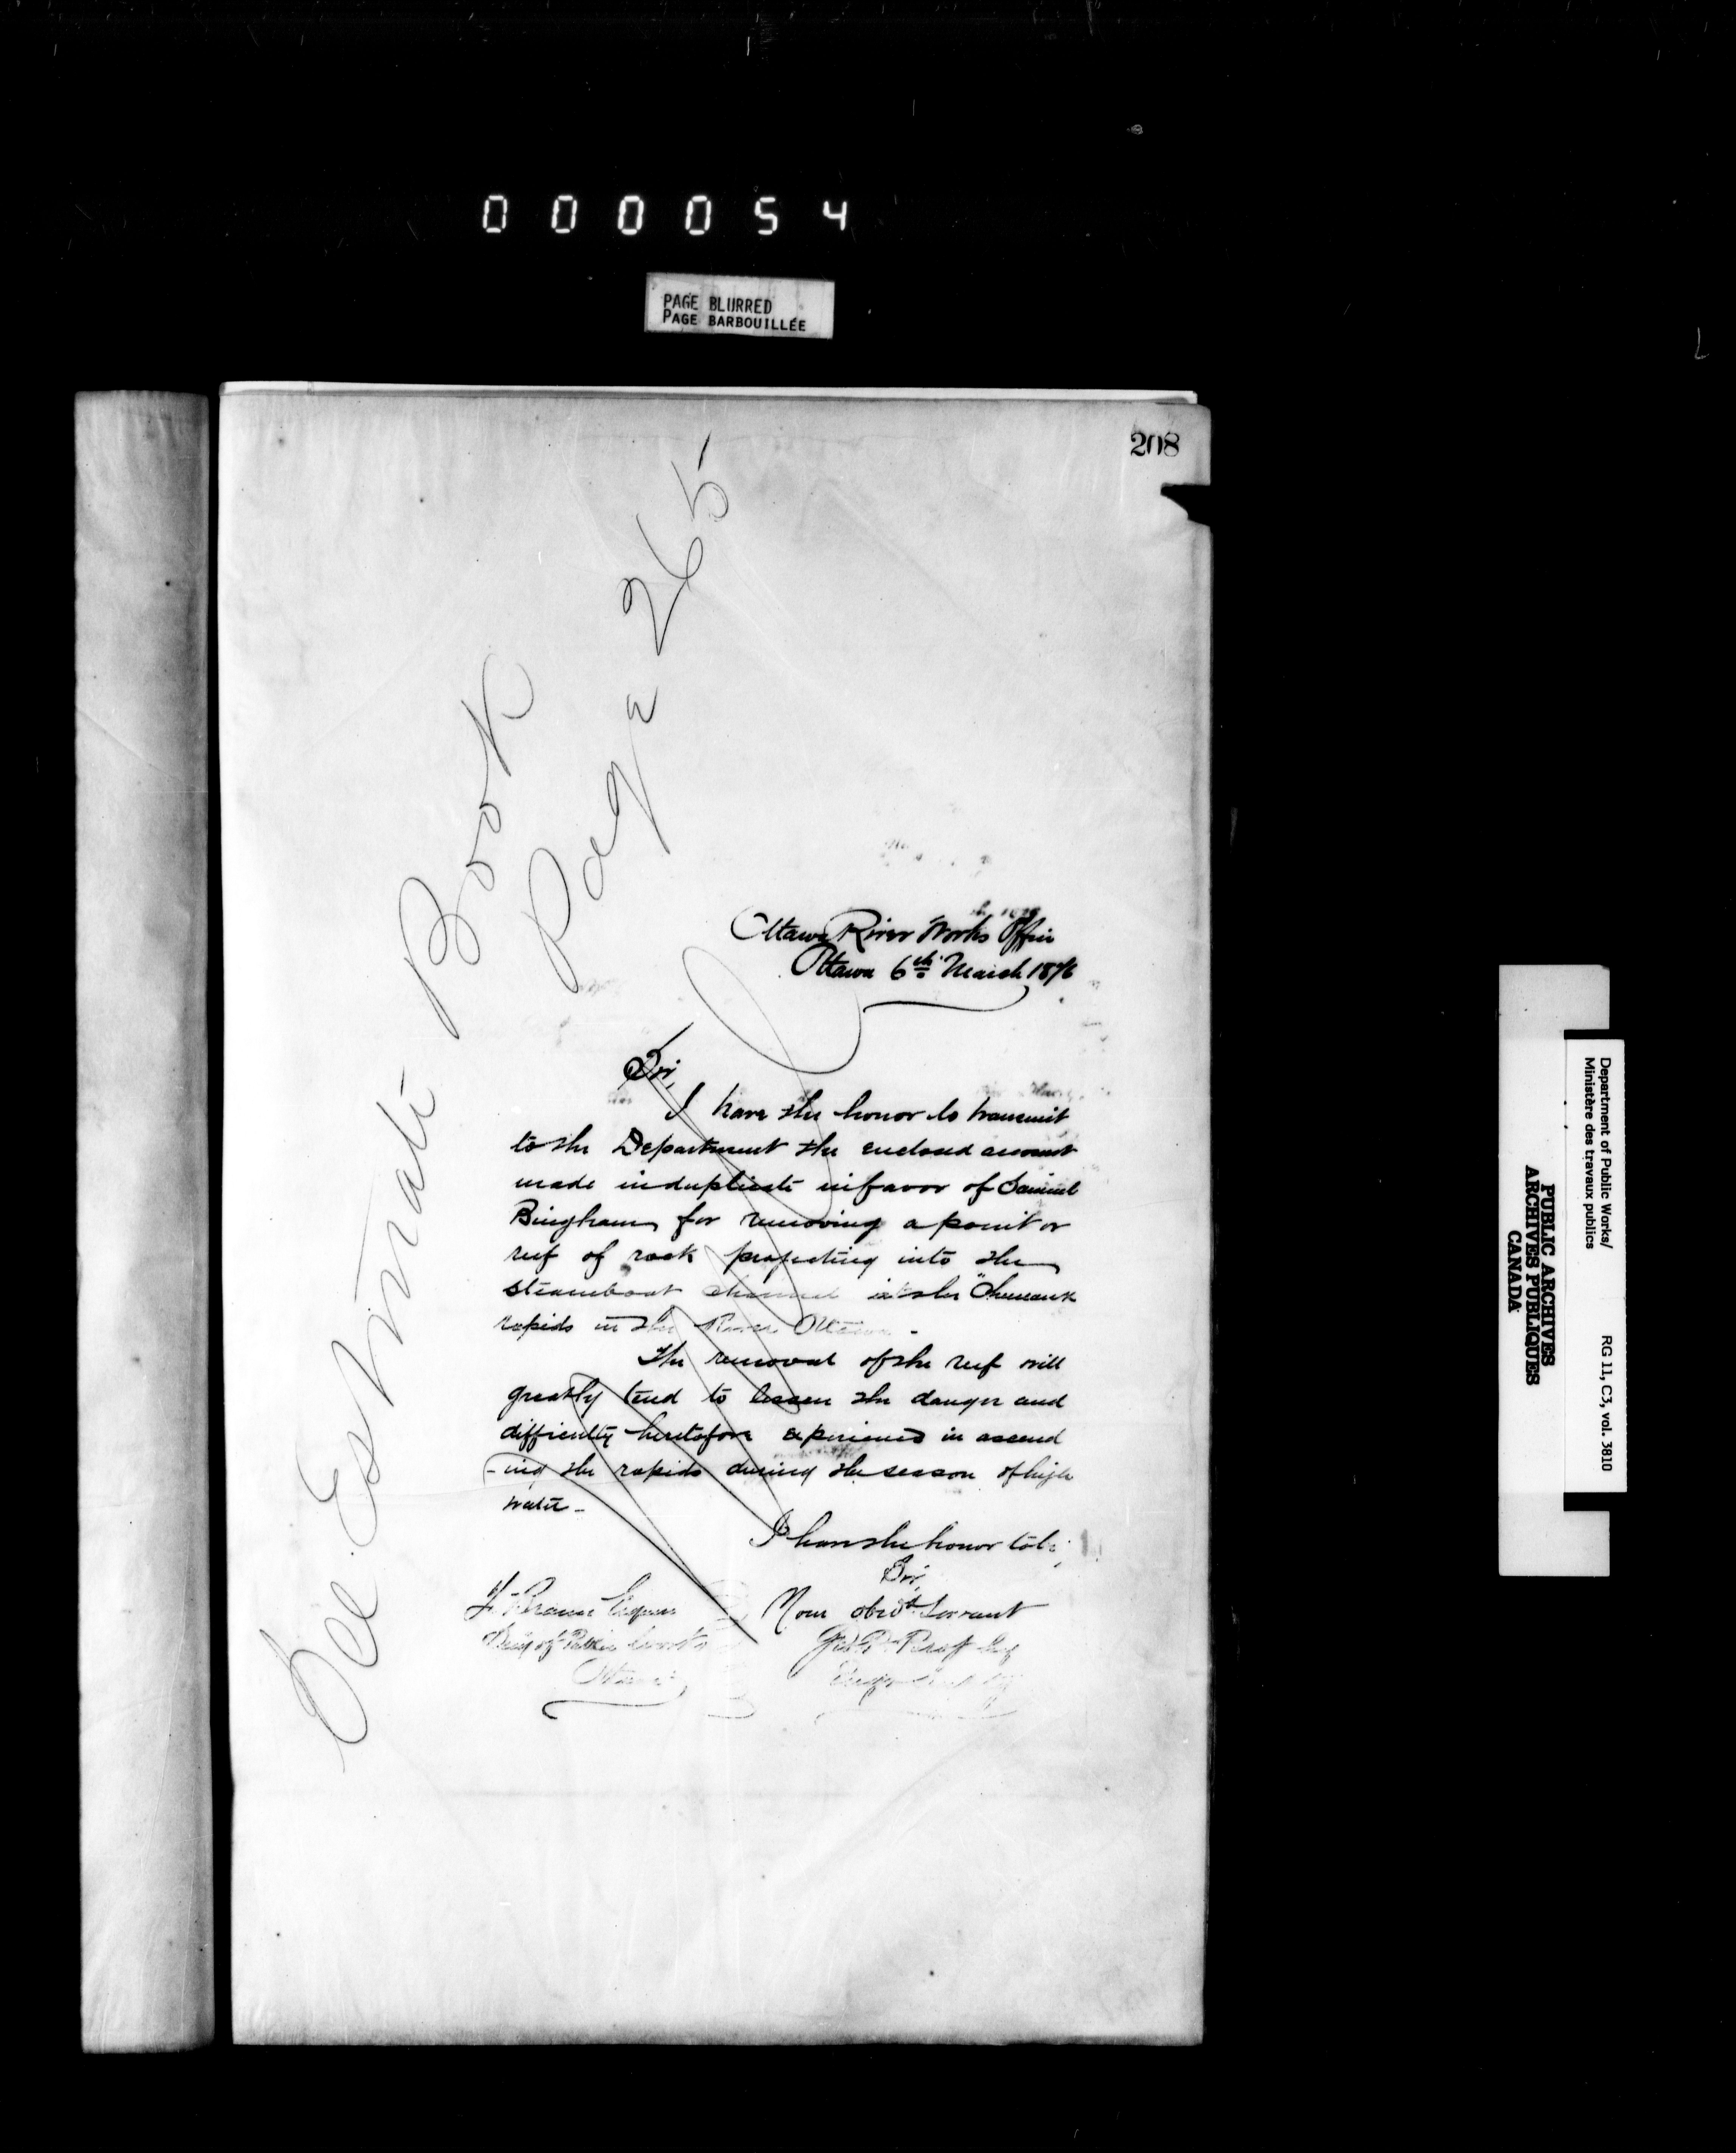 000054
PAGE BLURRED
PAGE BARBOUILLÉE
208
See Estimate Book
Page 265
Ottawa River Works Office
Ottawa 6th March 1876
Sir,
I have the honor to transmit
to the Department the enclosed account
made in duplicate in favor of Samuel
Bingham for removing a point or
reef of rock projecting into the
steamboat channel at the
rapids in the River Ottawa -
The removal of the reef will
greatly tend to lessen the danger and
difficulty heretofore experienced in ascend
-ing the rapids during the season of high
water -
I have the honor to be
Sir,
Your obedt Servant
F. Braun Esquire
Secy of Public Works
Ottawa
Department of Public Works/
Ministère des travaux publics
RG 11, C3, vol. 3810
PUBLIC ARCHIVES
ARCHIVES PUBLIQUES
CANADA